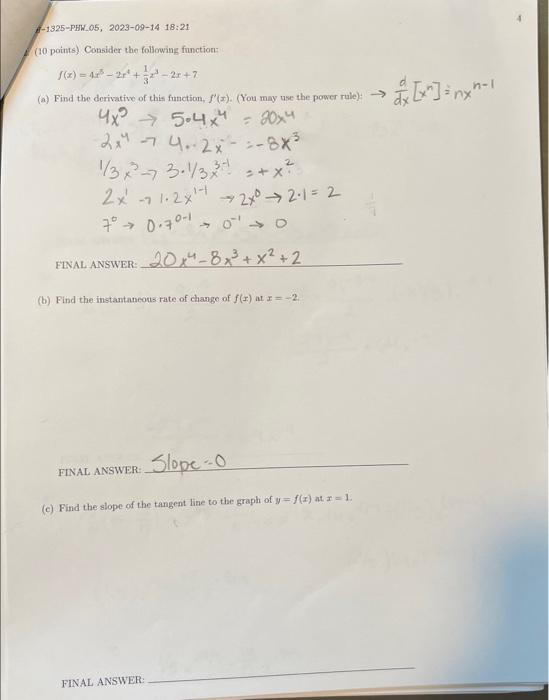 4
-1325-PHW_05, 2023-09-14 18:21
(10 points) Consider the following function:
f(x) = 4x⁵ − 2x⁴ + 1/3 x³ − 2x + 7
(a) Find the derivative of this function, f′(x). (You may use the power rule): → d/dx [xⁿ] = nxⁿ⁻¹
4x⁵ → 5·4x⁴ = 20x⁴
2x⁴ → 4·2x = -8x³
1/3x³ → 3·1/3x³⁻¹ = +x²
2x¹ → 1·2x¹⁻¹ → 2x⁰ → 2·1 = 2
7⁰ → 0·7⁰⁻¹ → 0⁻¹ → 0
FINAL ANSWER: 20x⁴-8x³+x²+2
(b) Find the instantaneous rate of change of f(x) at x = −2.
FINAL ANSWER: Slope=0
(c) Find the slope of the tangent line to the graph of y = f(x) at x = 1.
FINAL ANSWER: